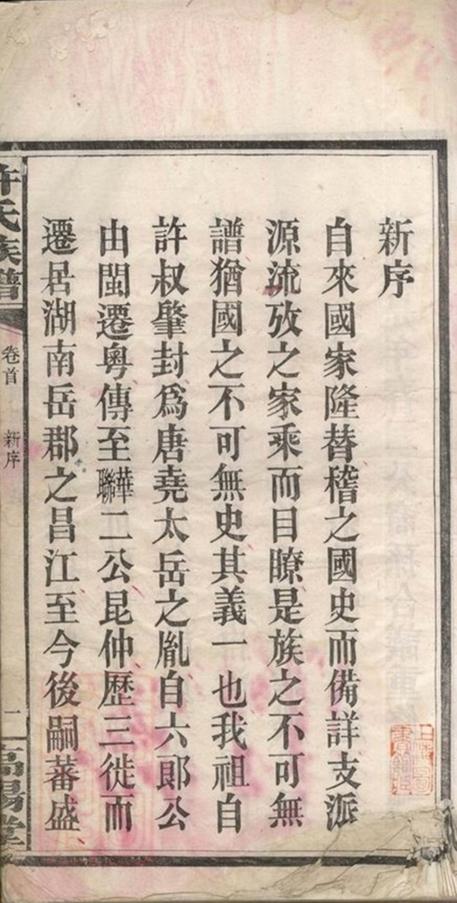 新序
自來國家隆替稽之國史而備詳支派
源流攷之家乘而目瞭是族之不可無
譜猶國之不可無史其義一也我祖自
許叔肇封爲唐堯太岳之胤自六郎公
由閩遷粵傳至華聯二公昆仲歷三徙而
遷居湖南岳郡之昌江至今後嗣蕃盛
許氏族譜
卷首
新序
一
高陽堂